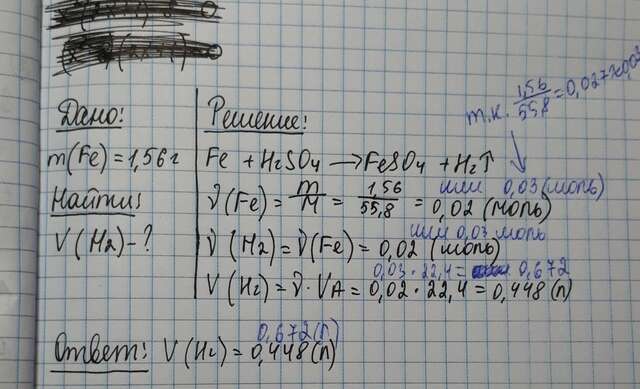 т.к. 1,56/55,8 = 0,027≈0,03
Дано:
Решение:
m(Fe) = 1,56г
Fe + H₂SO₄ → FeSO₄ + H₂↑
Найти:
или 0,03 (моль)
ν(Fe) = m/M = 1,56/55,8 = 0,02 (моль)
V(H₂) - ?
или 0,03 моль
ν(H₂) = ν(Fe) = 0,02 (моль)
0,03 · 22,4 = 0,672
V(H₂) = ν · VA = 0,02 · 22,4 = 0,448 (л)
0,672 (л)
Ответ: V(H₂) = 0,448 (л)